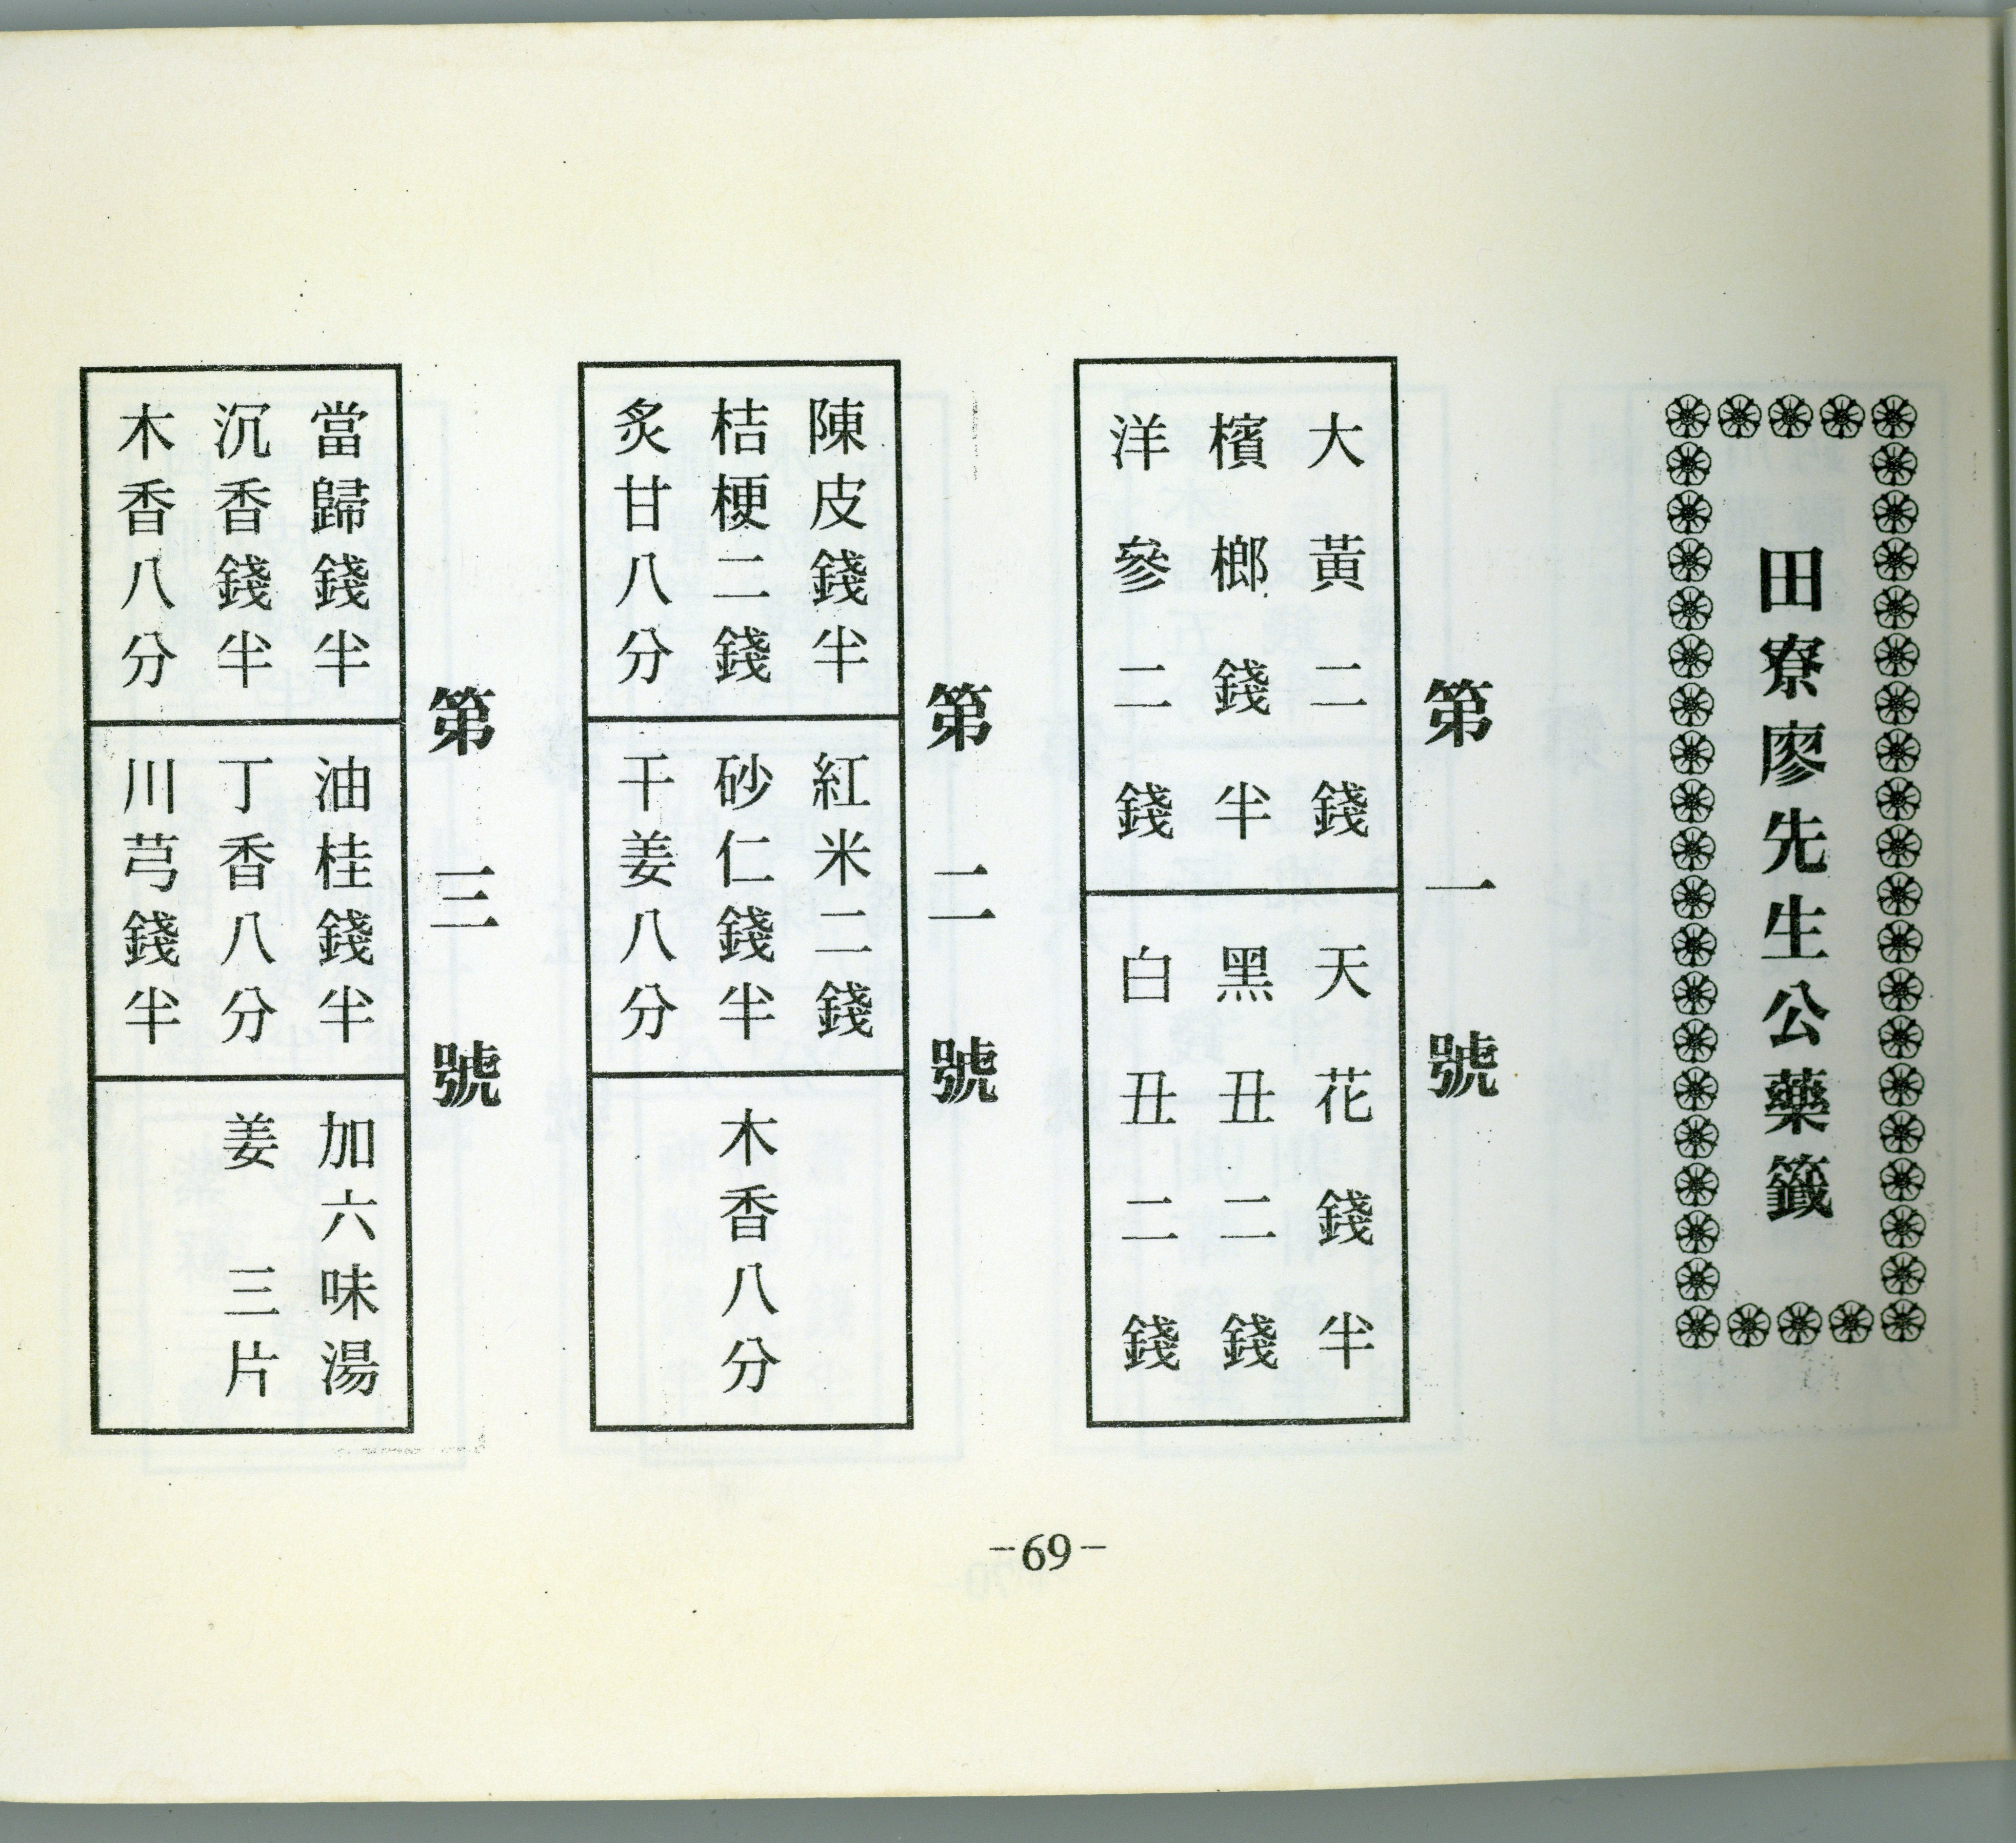 田寮廖先生公藥籤
第一號
大黃二錢
檳榔錢半
洋參二錢
天花錢半
黑丑二錢
白丑二錢
第二號
陳皮錢半
桔梗二錢
炙甘八分
紅米二錢
砂仁錢半
干姜八分
木香八分
第三號
當歸錢半
沉香錢半
木香八分
油桂錢半
丁香八分
川芎錢半
加六味湯
姜三片
-69-